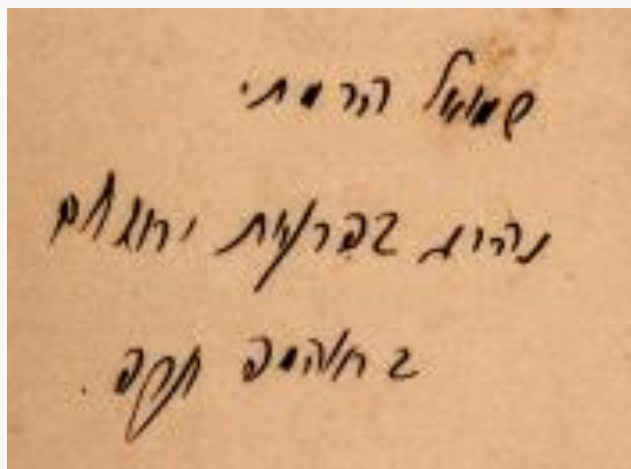 שמואל הרמתי
נהרג בפרעות ירושלם
בחוהמפ תרפ.